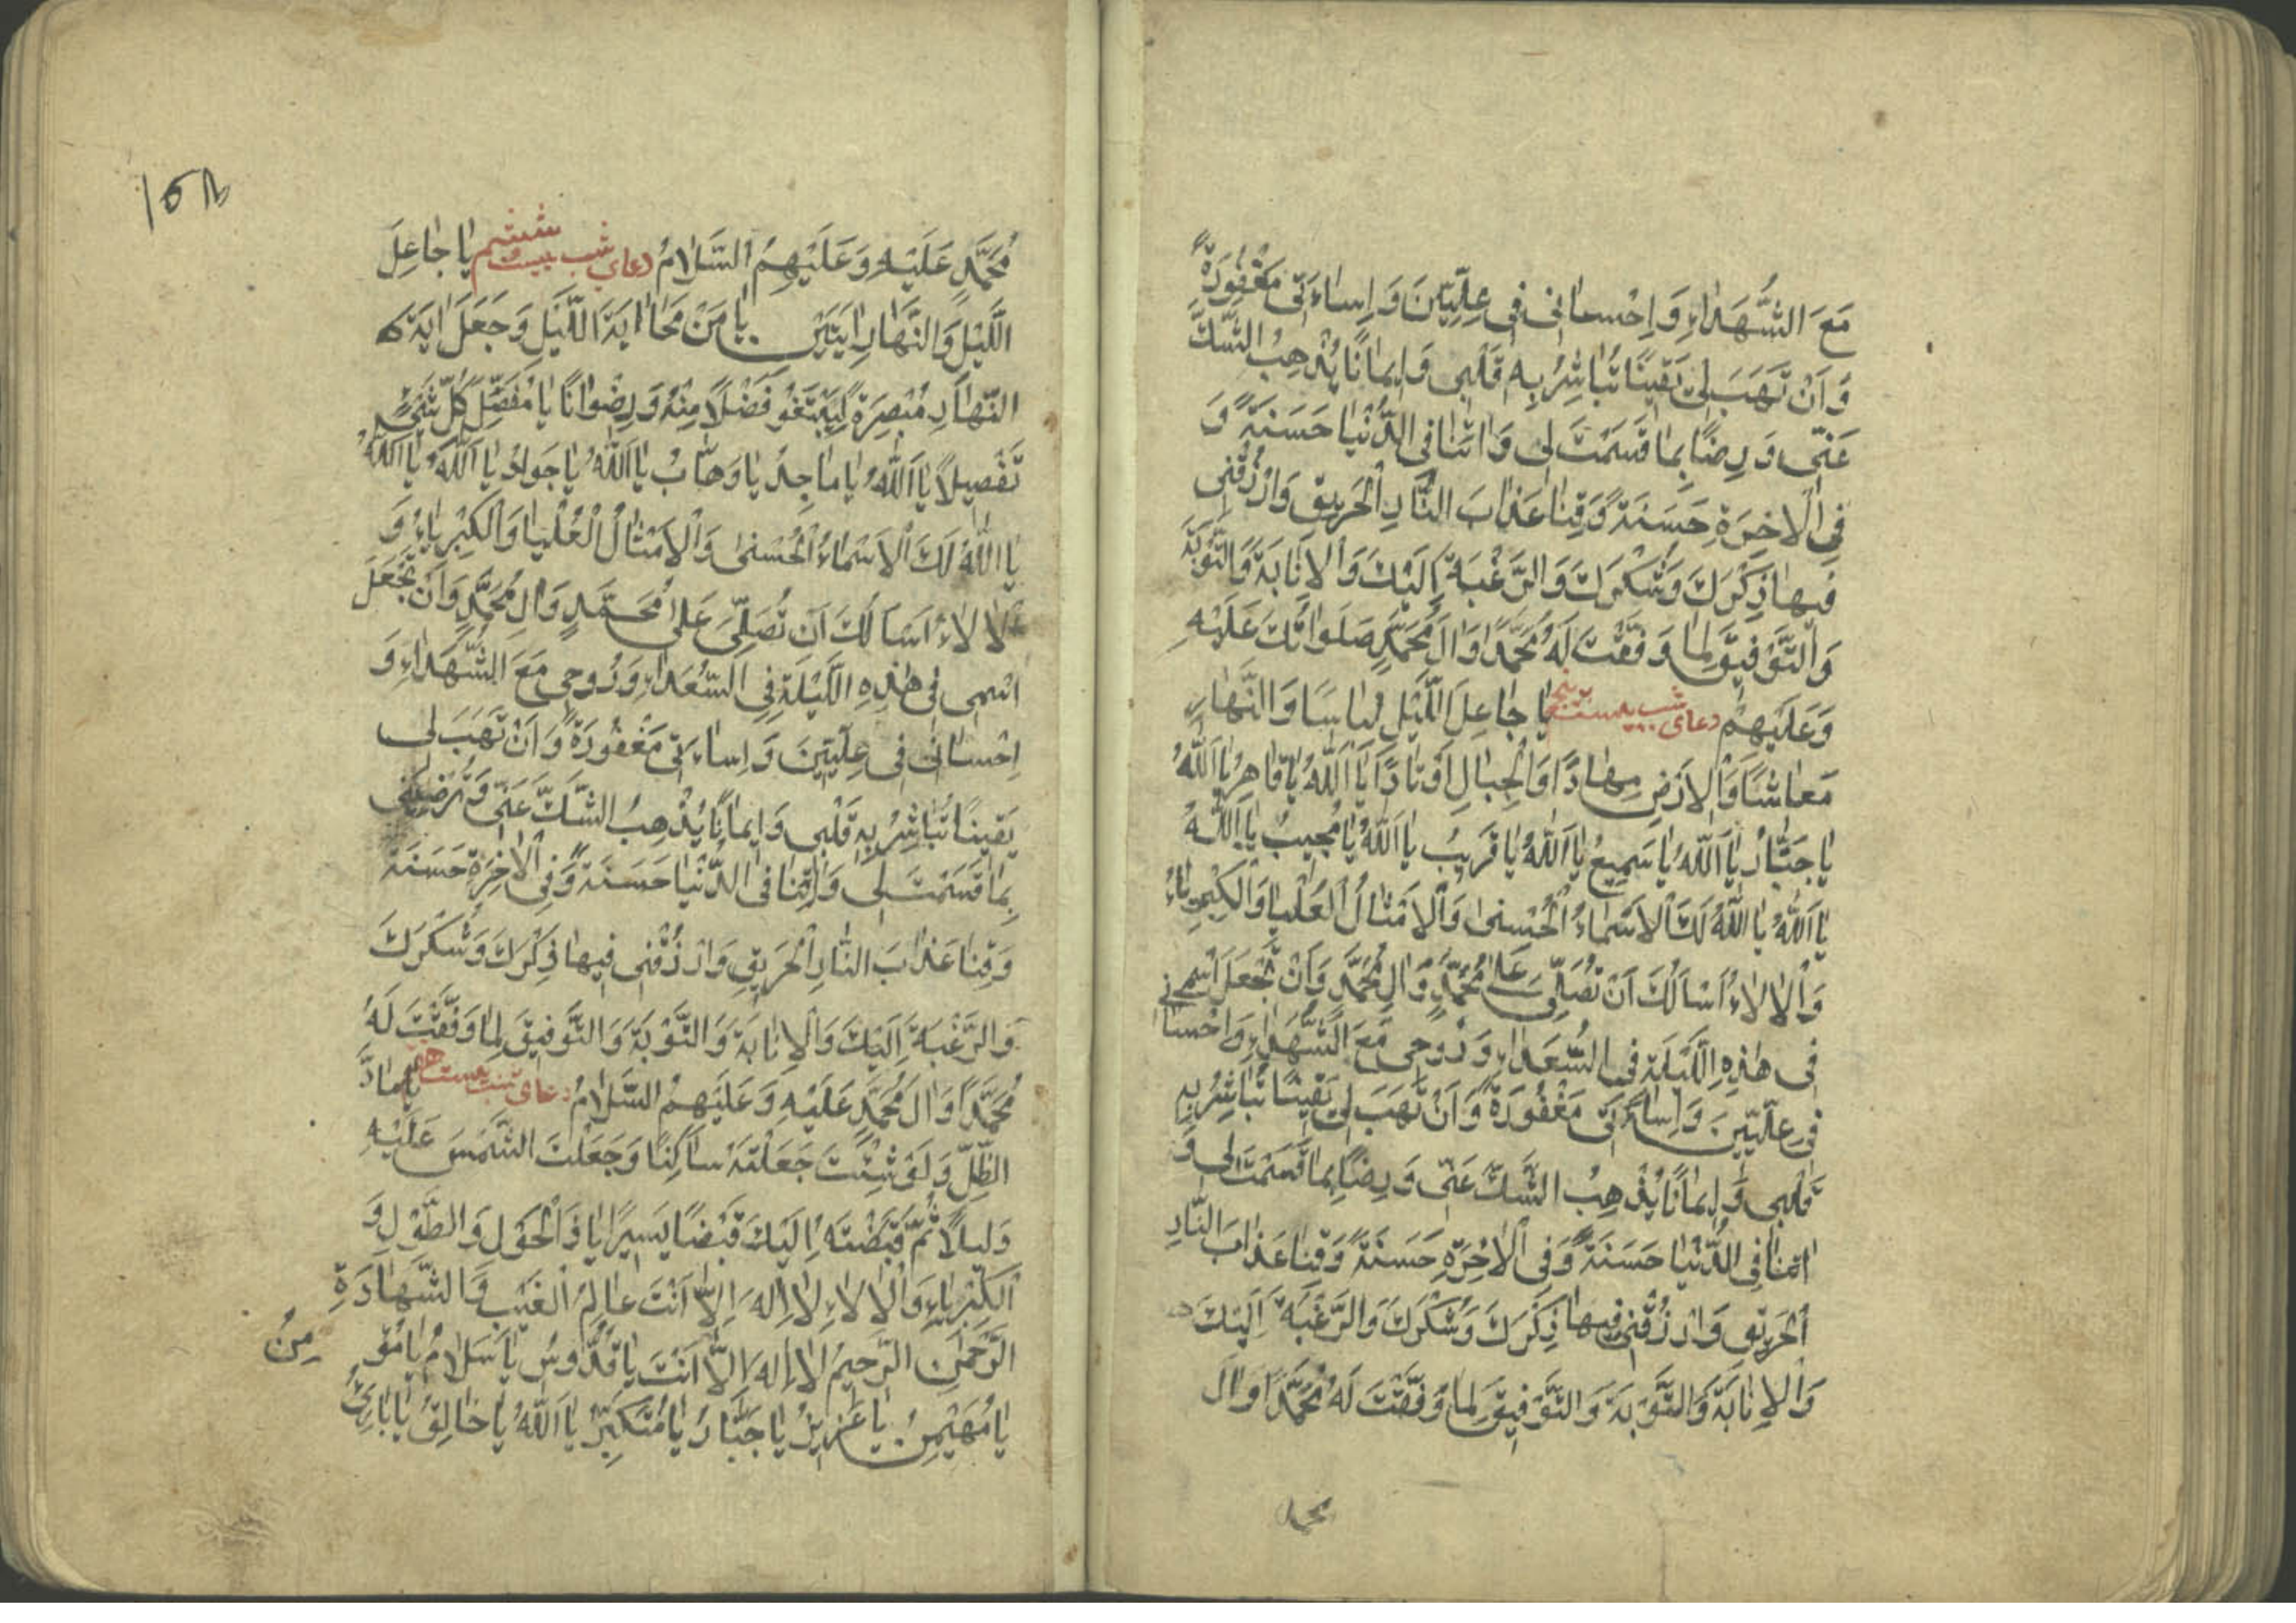 مَعَ الشُّهَدَاءِ وَ اِحْسَانِی فِی عِلِّیِّینَ وَ اِسَاءَتِی مَغْفُورَةً
وَ اَنْ تَهَبَ لِی یَقِینًا تُبَاشِرُ بِهِ قَلْبِی وَ اِیمَانًا یُذْهِبُ الشَّكَّ
عَنِّی وَ رِضًا بِمَا قَسَمْتَ لِی وَ اٰتِنَا فِی الدُّنْیَا حَسَنَةً وَ
فِی الْاٰخِرَةِ حَسَنَةً وَقِنَا عَذَابَ النَّارِ الْحَرِیقِ وَارْزُقْنِی
فِیهَا ذِكْرَكَ وَ شُكْرَكَ وَالرَّغْبَةَ اِلَیْكَ وَ الْاِنَابَةَ وَالتَّوْبَةَ
وَالتَّوْفِیقَ لِمَا وَفَّقْتَ لَهُ مُحَمَّدًا وَ اٰلَ مُحَمَّدٍ صَلَوَاتُكَ عَلَیْهِ
وَعَلَیْهِمْ دعای شب بیست پنجم یَا جَاعِلَ اللَّیْلِ لِبَاسًا وَ النَّهَارِ
مَعَاشًا وَالْاَرْضِ مِهَادًا وَالْجِبَالِ اَوْتَادًا یَا اَللّٰهُ یَا قَاهِرُ یَا اَللّٰهُ
یَا جَبَّارُ یَا اَللّٰهُ یَا سَمِیعُ یَا اَللّٰهُ یَا قَرِیبُ یَا اَللّٰهُ یَا مُجِیبُ یَا اَللّٰهُ
یَا اَللّٰهُ یَا اَللّٰهُ لَكَ الْاَسْمَاءُ الْحُسْنٰی وَالْاَمْثَالُ الْعُلْیَا وَالْكِبْرِیَاءُ
وَ الْاٰلَاءُ اَسْاَلُكَ اَنْ تُصَلِّیَ عَلٰی مُحَمَّدٍ وَ اٰلِ مُحَمَّدٍ وَ اَنْ تَجْعَلَ اسْمِی
فِی هٰذِهِ اللَّیْلَةِ فِی السُّعَدَاءِ وَ رُوحِی مَعَ الشُّهَدَاءِ وَ اِحْسَانِی
فِی عِلِّیِّینَ وَ اِسَاءَتِی مَغْفُورَةً وَ اَنْ تَهَبَ لِی یَقِینًا تُبَاشِرُ بِهِ
قَلْبِی وَ اِیمَانًا یُذْهِبُ الشَّكَّ عَنِّی وَ رِضًا بِمَا قَسَمْتَ لِی وَ
اٰتِنَا فِی الدُّنْیَا حَسَنَةً وَ فِی الْاٰخِرَةِ حَسَنَةً وَ قِنَا عَذَابَ النَّارِ
الْحَرِیقِ وَ ارْزُقْنِی فِیهَا ذِكْرَكَ وَ شُكْرَكَ وَ الرَّغْبَةَ اِلَیْكَ
وَ الْاِنَابَةَ وَ التَّوْبَةَ وَ التَّوْفِیقَ لِمَا وَفَّقْتَ لَهُ مُحَمَّدًا وَ اٰلَ
محمد
مُحَمَّدٍ عَلَیْهِ وَ عَلَیْهِمُ السَّلَامُ دعای شب بیست ششم یَا جَاعِلَ
اللَّیْلِ وَ النَّهَارِ اٰیَتَیْنِ یَا مَنْ مَحَا اٰیَةَ اللَّیْلِ وَ جَعَلَ اٰیَةَ
النَّهَارِ مُبْصِرَةً لِیَبْتَغُو فَضْلًا مِنْهُ وَ رِضْوَانًا یَا مُفَصِّلَ كُلِّ شَیْءٍ
تَفْصِیلًا یَا اَللّٰهُ یَا مَاجِدُ یَا وَهَّابُ یَا اَللّٰهُ یَا جَوَادُ یَا اَللّٰهُ یَا اَللّٰهُ
یَا اللّٰهُ لَكَ الْاَسْمَاءُ الْحُسْنٰی وَ الْاَمْثَالُ الْعُلْیَا وَالْكِبْرِیَاءُ وَ
الْاٰلَاءُ اَسْاَلُكَ اَنْ تُصَلِّیَ عَلٰی مُحَمَّدٍ وَ اٰلِ مُحَمَّدٍ وَ اَنْ تَجْعَلَ
اسْمِی فِی هٰذِهِ اللَّیْلَةِ فِی السُّعَدَاءِ وَ رُوحِی مَعَ الشُّهَدَاءِ وَ
اِحْسَانِی فِی عِلِّیِّینَ وَ اِسَاءَتِی مَغْفُورَةً وَ اَنْ تَهَبَ لِی
یَقِینًا تُبَاشِرُ بِهِ قَلْبِی وَ اِیمَانًا یُذْهِبُ الشَّكَّ عَنِّی وَ تُرْضِیَنِی
بِمَا قَسَمْتَ لِی وَ اٰتِنَا فِی الدُّنْیَا حَسَنَةً وَ فِی الْاٰخِرَةِ حَسَنَةً
وَ قِنَا عَذَابَ النَّارِ الْحَرِیقِ وَ ارْزُقْنِی فِیهَا ذِكْرَكَ وَ شُكْرَكَ
وَ الرَّغْبَةَ اِلَیْكَ وَ الْاِنَابَةَ وَ التَّوْبَةَ وَ التَّوْفِیقَ لِمَا وَفَّقْتَ لَهُ
مُحَمَّدًا وَ اٰلَ مُحَمَّدٍ عَلَیْهِ وَ عَلَیْهِمُ السَّلَامُ دعای شب بیست هفتم یَا مَادَّ
الظِّلِّ وَ لَوْ شِئْتَ جَعَلْتَهُ سَاكِنًا وَ جَعَلْتَ الشَّمْسَ عَلَیْهِ
دَلِیلًا ثُمَّ قَبَضْتَهُ اِلَیْكَ قَبْضًا یَسِیرًا یَا ذَا الْحَوْلِ وَ الطَّوْلِ وَ
الْكِبْرِیَاءِ وَ الْاٰلَاءِ لَا اِلٰهَ اِلَّا اَنْتَ عَالِمُ الْغَیْبِ وَ الشَّهَادَةِ
الرَّحْمٰنُ الرَّحِیمُ لَا اِلٰهَ اِلَّا اَنْتَ یَا قُدُّوسُ یَا سَلَامُ یَا مُؤْمِنُ
یَا مُهَیْمِنُ یَا عَزِیزُ یَا جَبَّارُ یَا مُتَكَبِّرُ یَا اَللّٰهُ یَا خَالِقُ یَا بَارِئُ